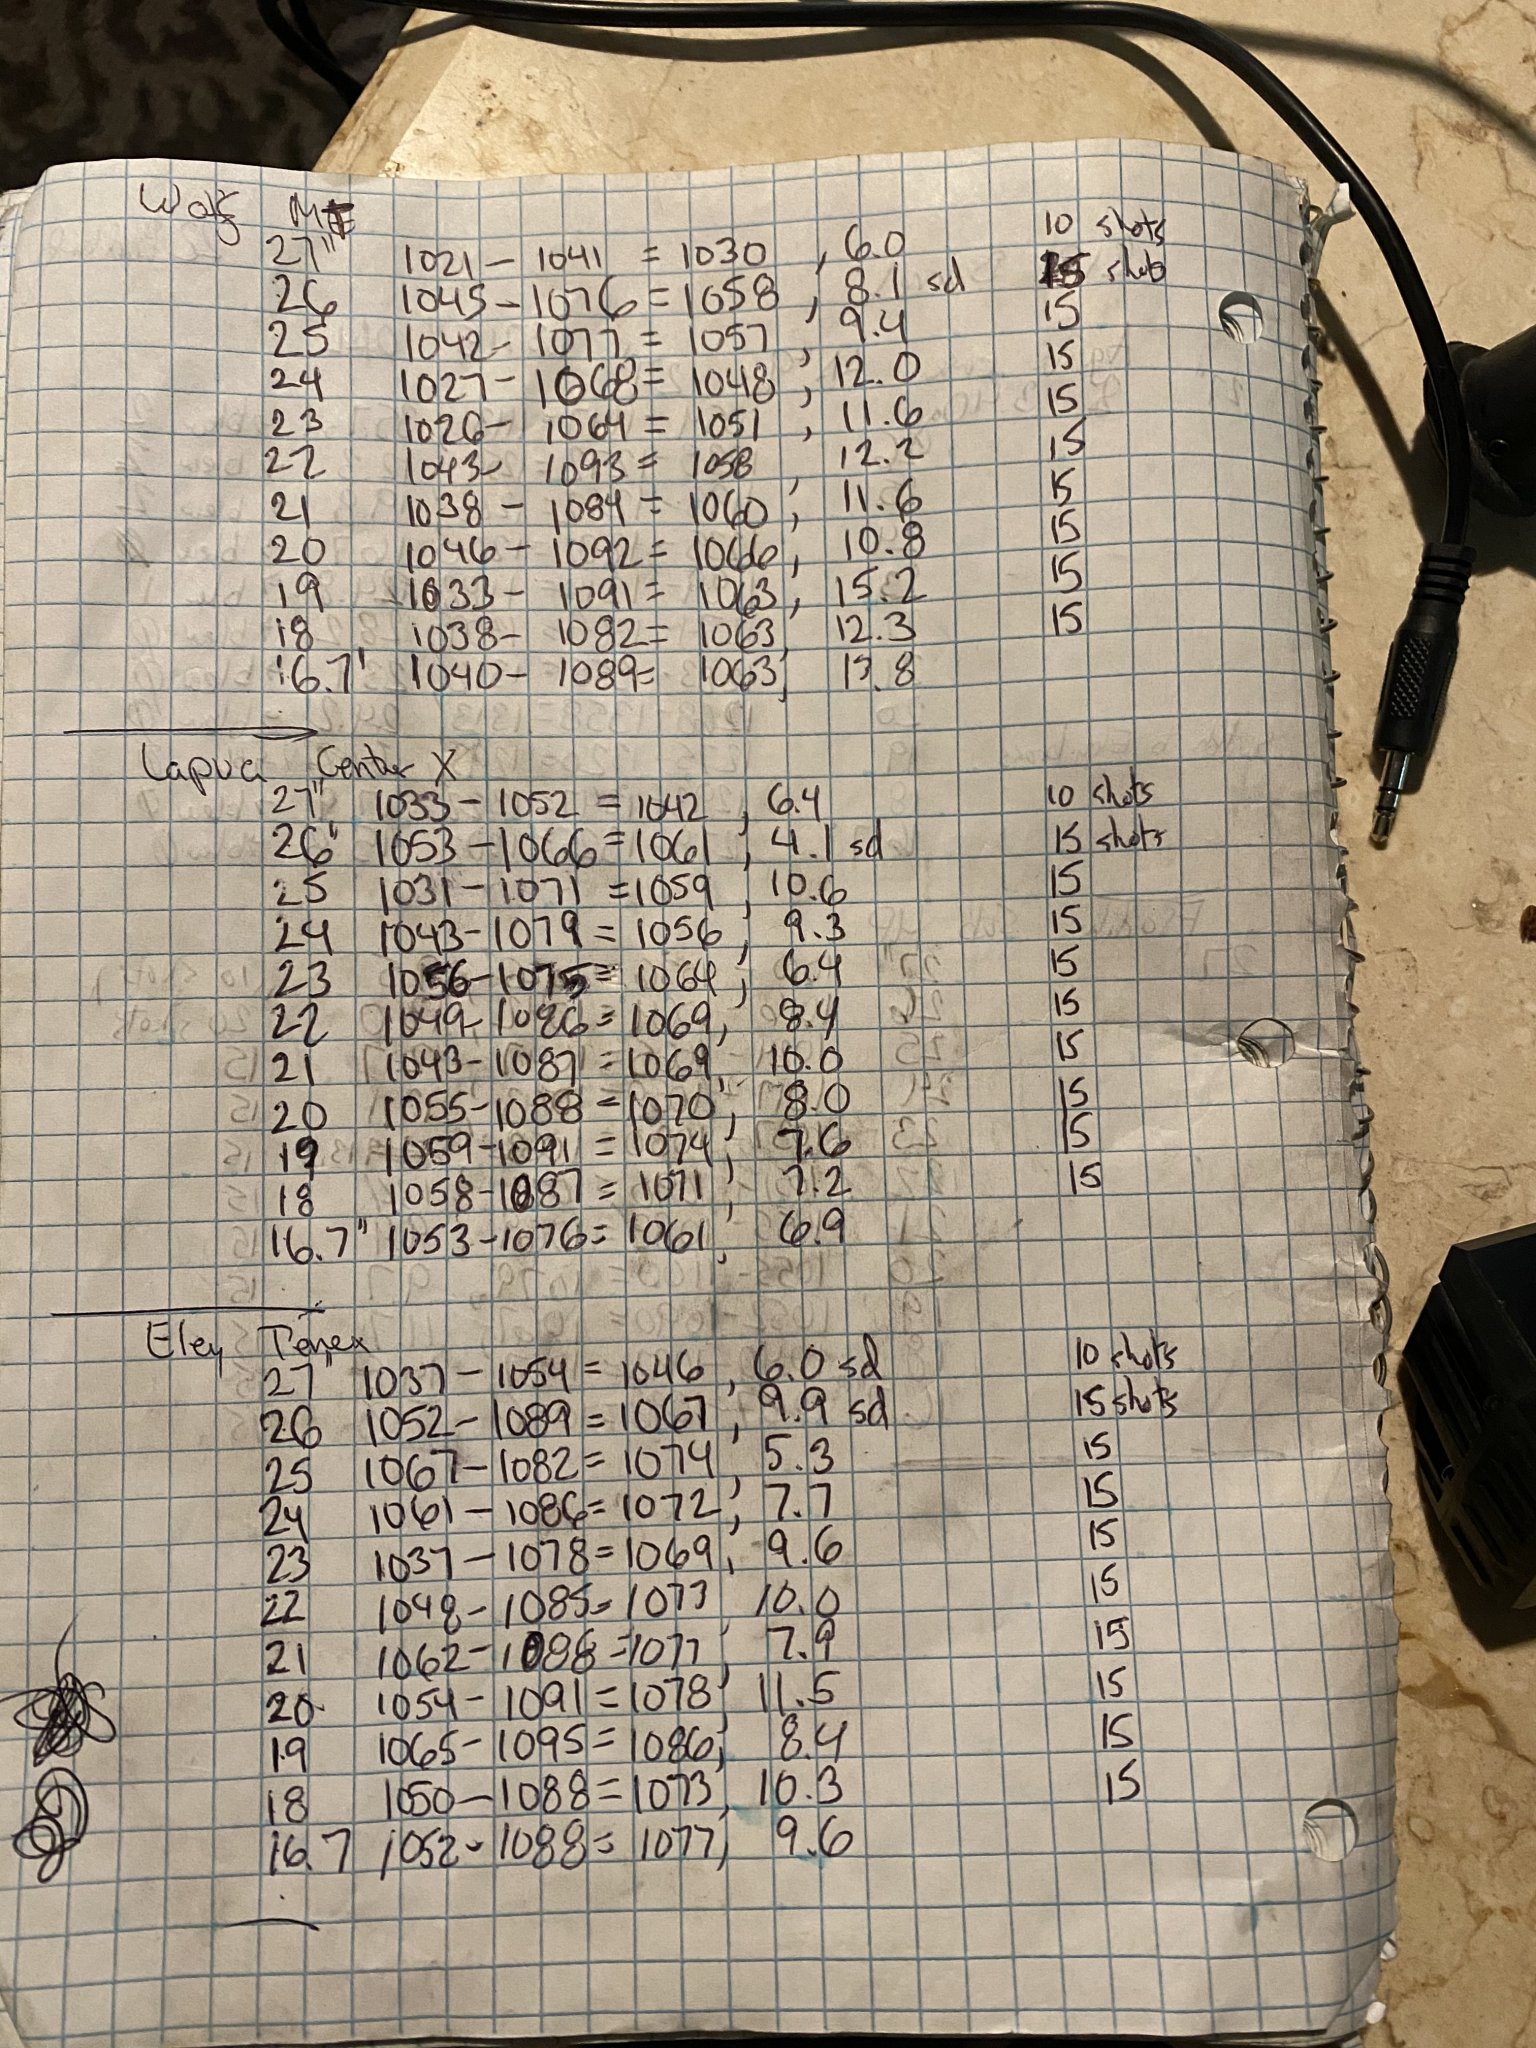 Wolf MT
27" 1021 - 1041 = 1030, 6.0 10 shots
26 1045 - 1076 = 1058, 8.1 sd 15 shots
25 1042 - 1077 = 1057, 9.4 15
24 1027 - 1068 = 1048, 12.0 15
23 1026 - 1064 = 1051, 11.6 15
22 1043 - 1093 = 1058, 12.2 15
21 1038 - 1084 = 1060, 11.6 15
20 1046 - 1092 = 1066, 10.8 15
19 1033 - 1091 = 1063, 15.2 15
18 1038 - 1082 = 1063, 12.3 15
16.7" 1040 - 1089 = 1063, 13.8
Lapua Center X
27" 1033 - 1052 = 1042, 6.4 10 shots
26" 1053 - 1066 = 1061, 4.1 sd 15 shots
25 1031 - 1071 = 1059, 10.6 15
24 1043 - 1079 = 1056, 9.3 15
23 1056 - 1075 = 1064, 6.4 15
22 1049 - 1086 = 1069, 8.4 15
21 1043 - 1087 = 1069, 10.0 15
20 1055 - 1088 = 1070, 8.0 15
19 1059 - 1091 = 1074, 7.6 15
18 1058 - 1087 = 1071, 7.2 15
16.7" 1053 - 1076 = 1061, 6.9
Eley Tenex
27" 1037 - 1054 = 1046, 6.0 sd 10 shots
26 1052 - 1089 = 1067, 9.9 sd 15 shots
25 1067 - 1082 = 1074, 5.3 15
24 1061 - 1086 = 1072, 7.7 15
23 1037 - 1078 = 1069, 9.6 15
22 1048 - 1085 = 1073, 10.0 15
21 1062 - 1088 = 1077, 7.9 15
20 1054 - 1091 = 1078, 11.5 15
19 1065 - 1095 = 1086, 8.4 15
18 1050 - 1088 = 1073, 10.3 15
16.7 1052 - 1088 = 1077, 9.6